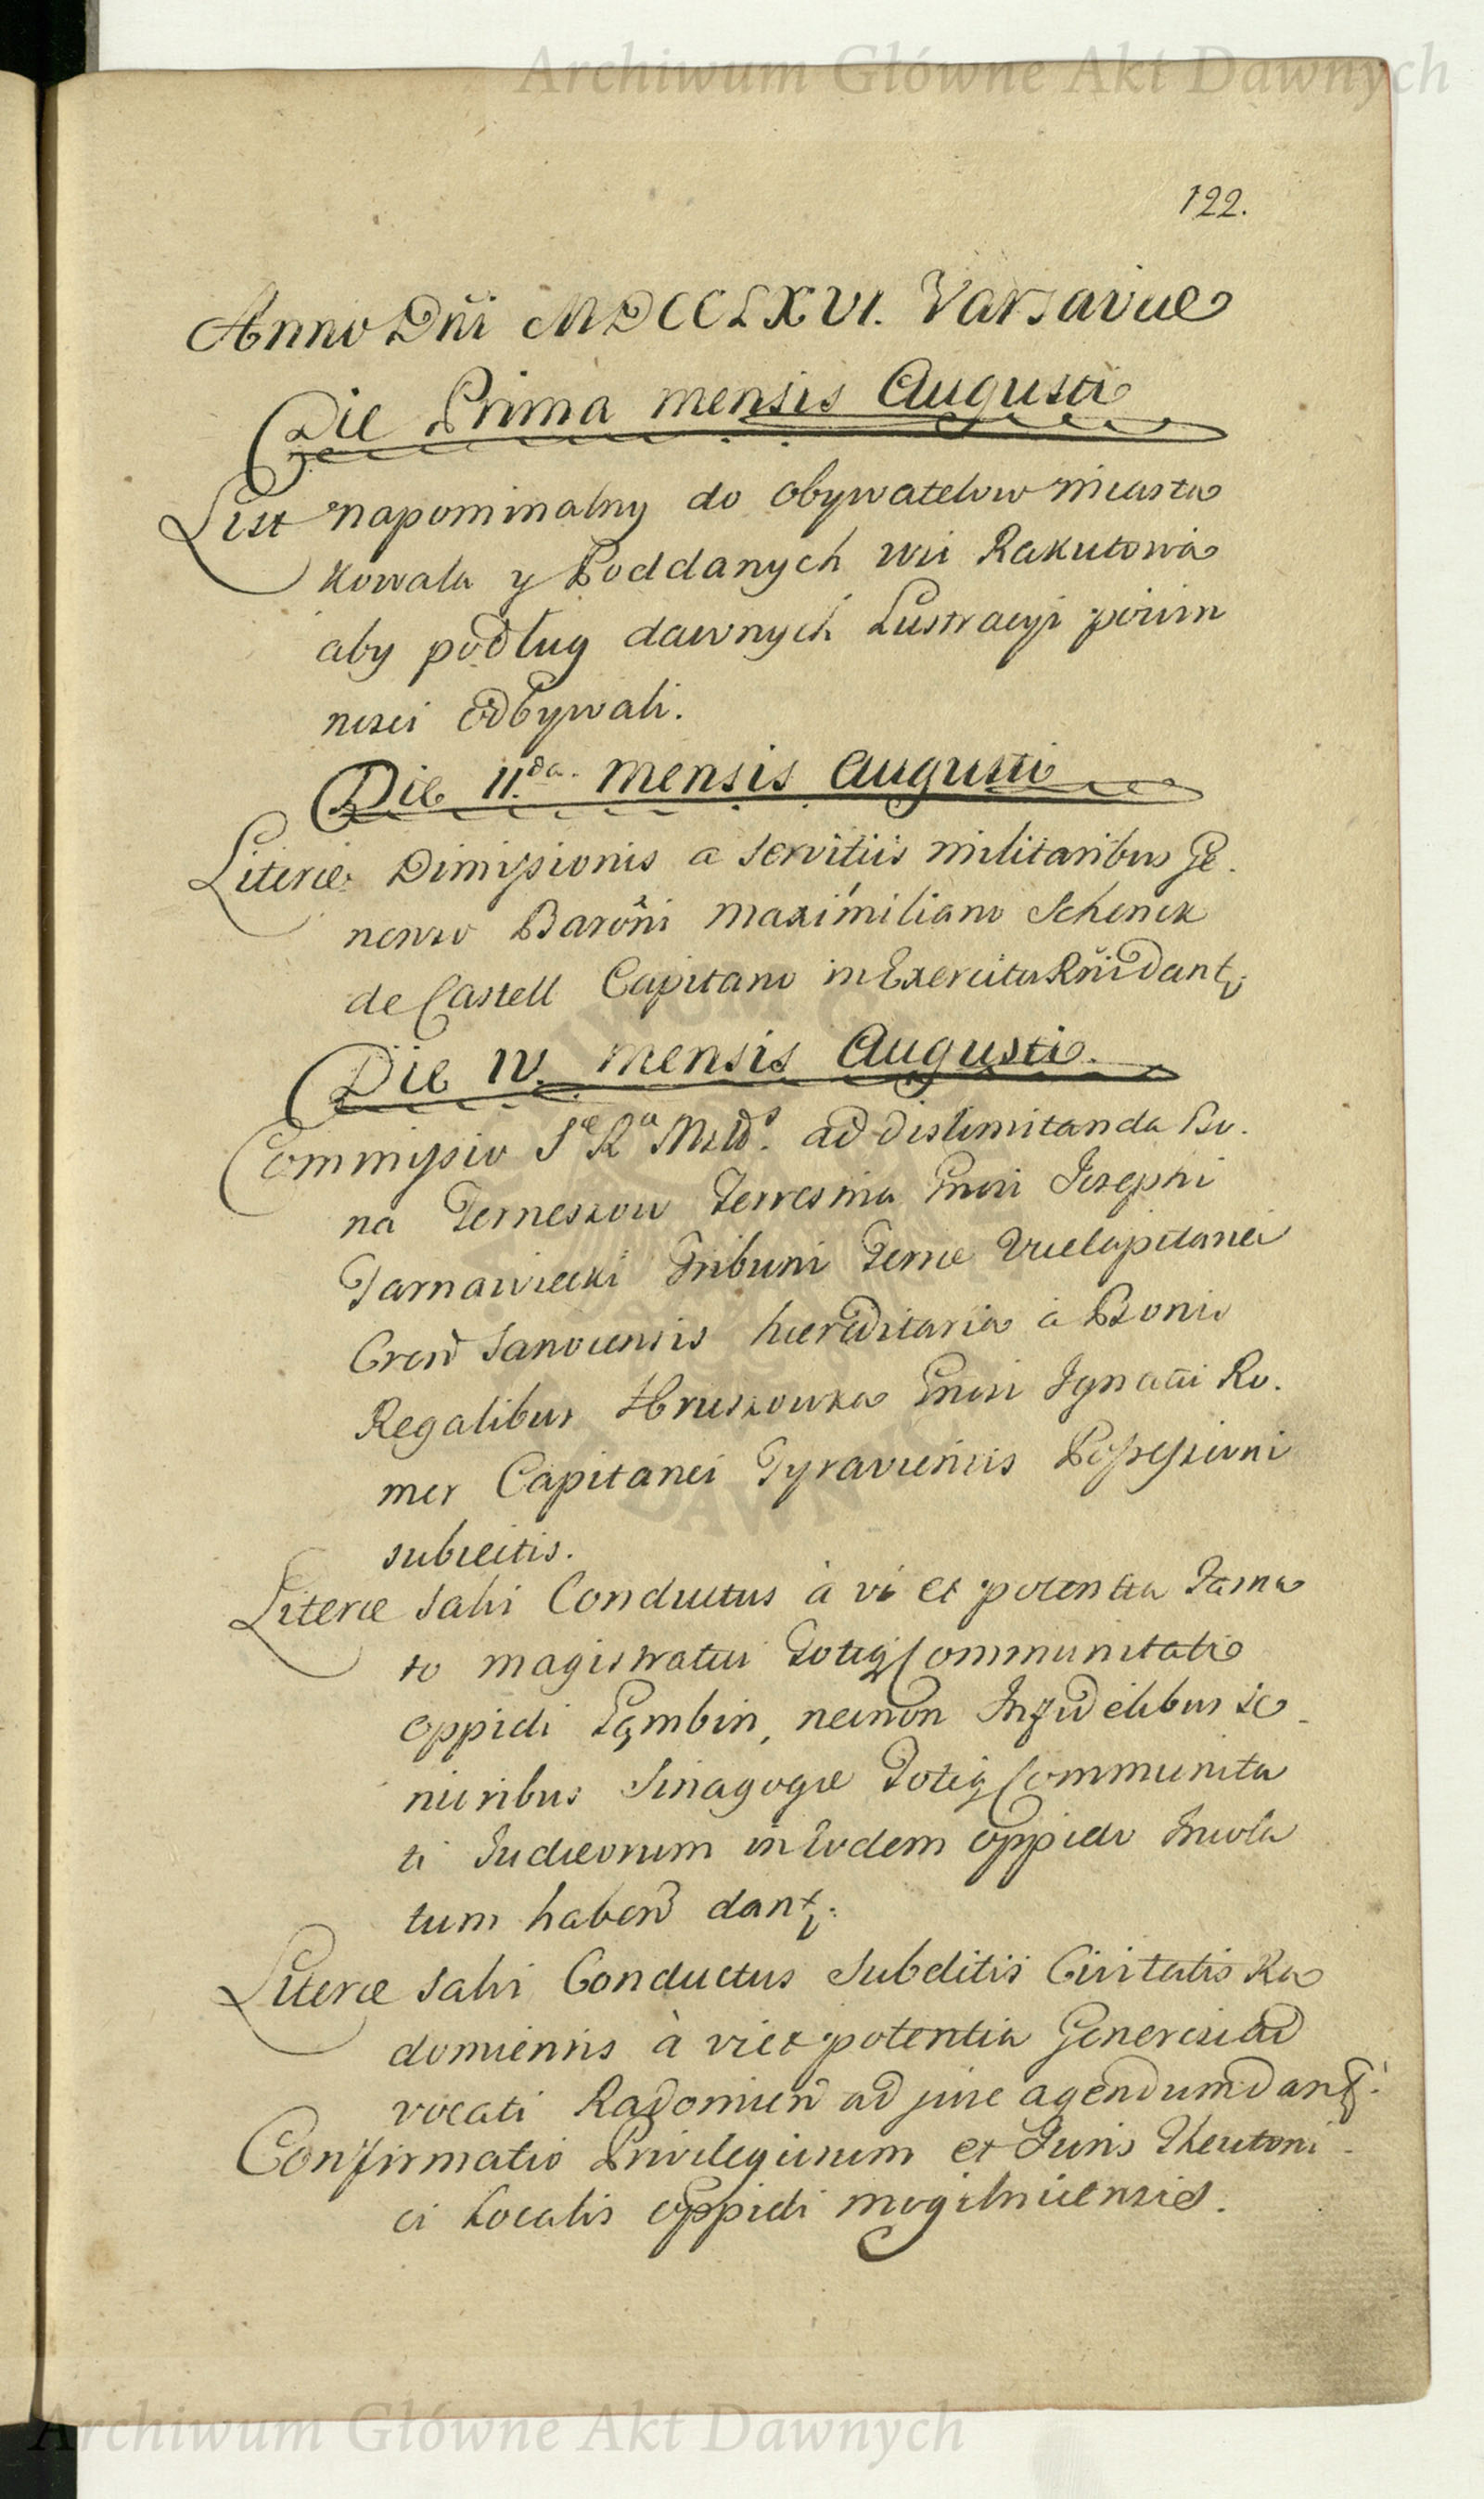 Archiwum Główne Akt Dawnych
122.
Anno Dñi MDCCLXVI. Varsaviæ
Die Prima mensis Augusti
List napominalny do obywatelow miasta
Kowala y Poddanych wsi Rakutowa
aby podług dawnych Lustracyi powin
nosci odbywali.
Die II.da mensis Augusti
Literæ Dimissionis a servitiis militaribus Ge.
neroso Barõni Maximiliano Schenck
de Castell Capitano in Exercitu Rñi dant.
Die IV. mensis Augusti.
Commissio Sæ Ræ Mttis. ad dislimitanda Bo.
na Terneszow Terrestria Gnosi Josephi
Tarnawiecki Tribuni Terræ Vicecapitanei
Cren Sanocensis hæreditaria à Bonis
Regalibus Hruszowka Gnosi Ignatii Ro.
mer Capitanei Tyraviensis Possessioni
subiectis.
Literæ Salvi Conductus à vi et potentia Fama
to magistratui Totiq Communitati
Oppidi Gąmbin, necnon Infidelibus Se.
nioribus Sinagogæ Totiq Communita
ti Judæorum in Eodem Oppido Incola
tum haben dant.
Literæ Salvi Conductus Subditis Civitatis Ra
domiensis à vi et potentia Generosi ad
vocati Radomien ad jure agendum dant.
Confirmatio Privilegiorum et Juris Theutoni-
ci Localis Oppidi Mogilnicensis.
Archiwum Główne Akt Dawnych